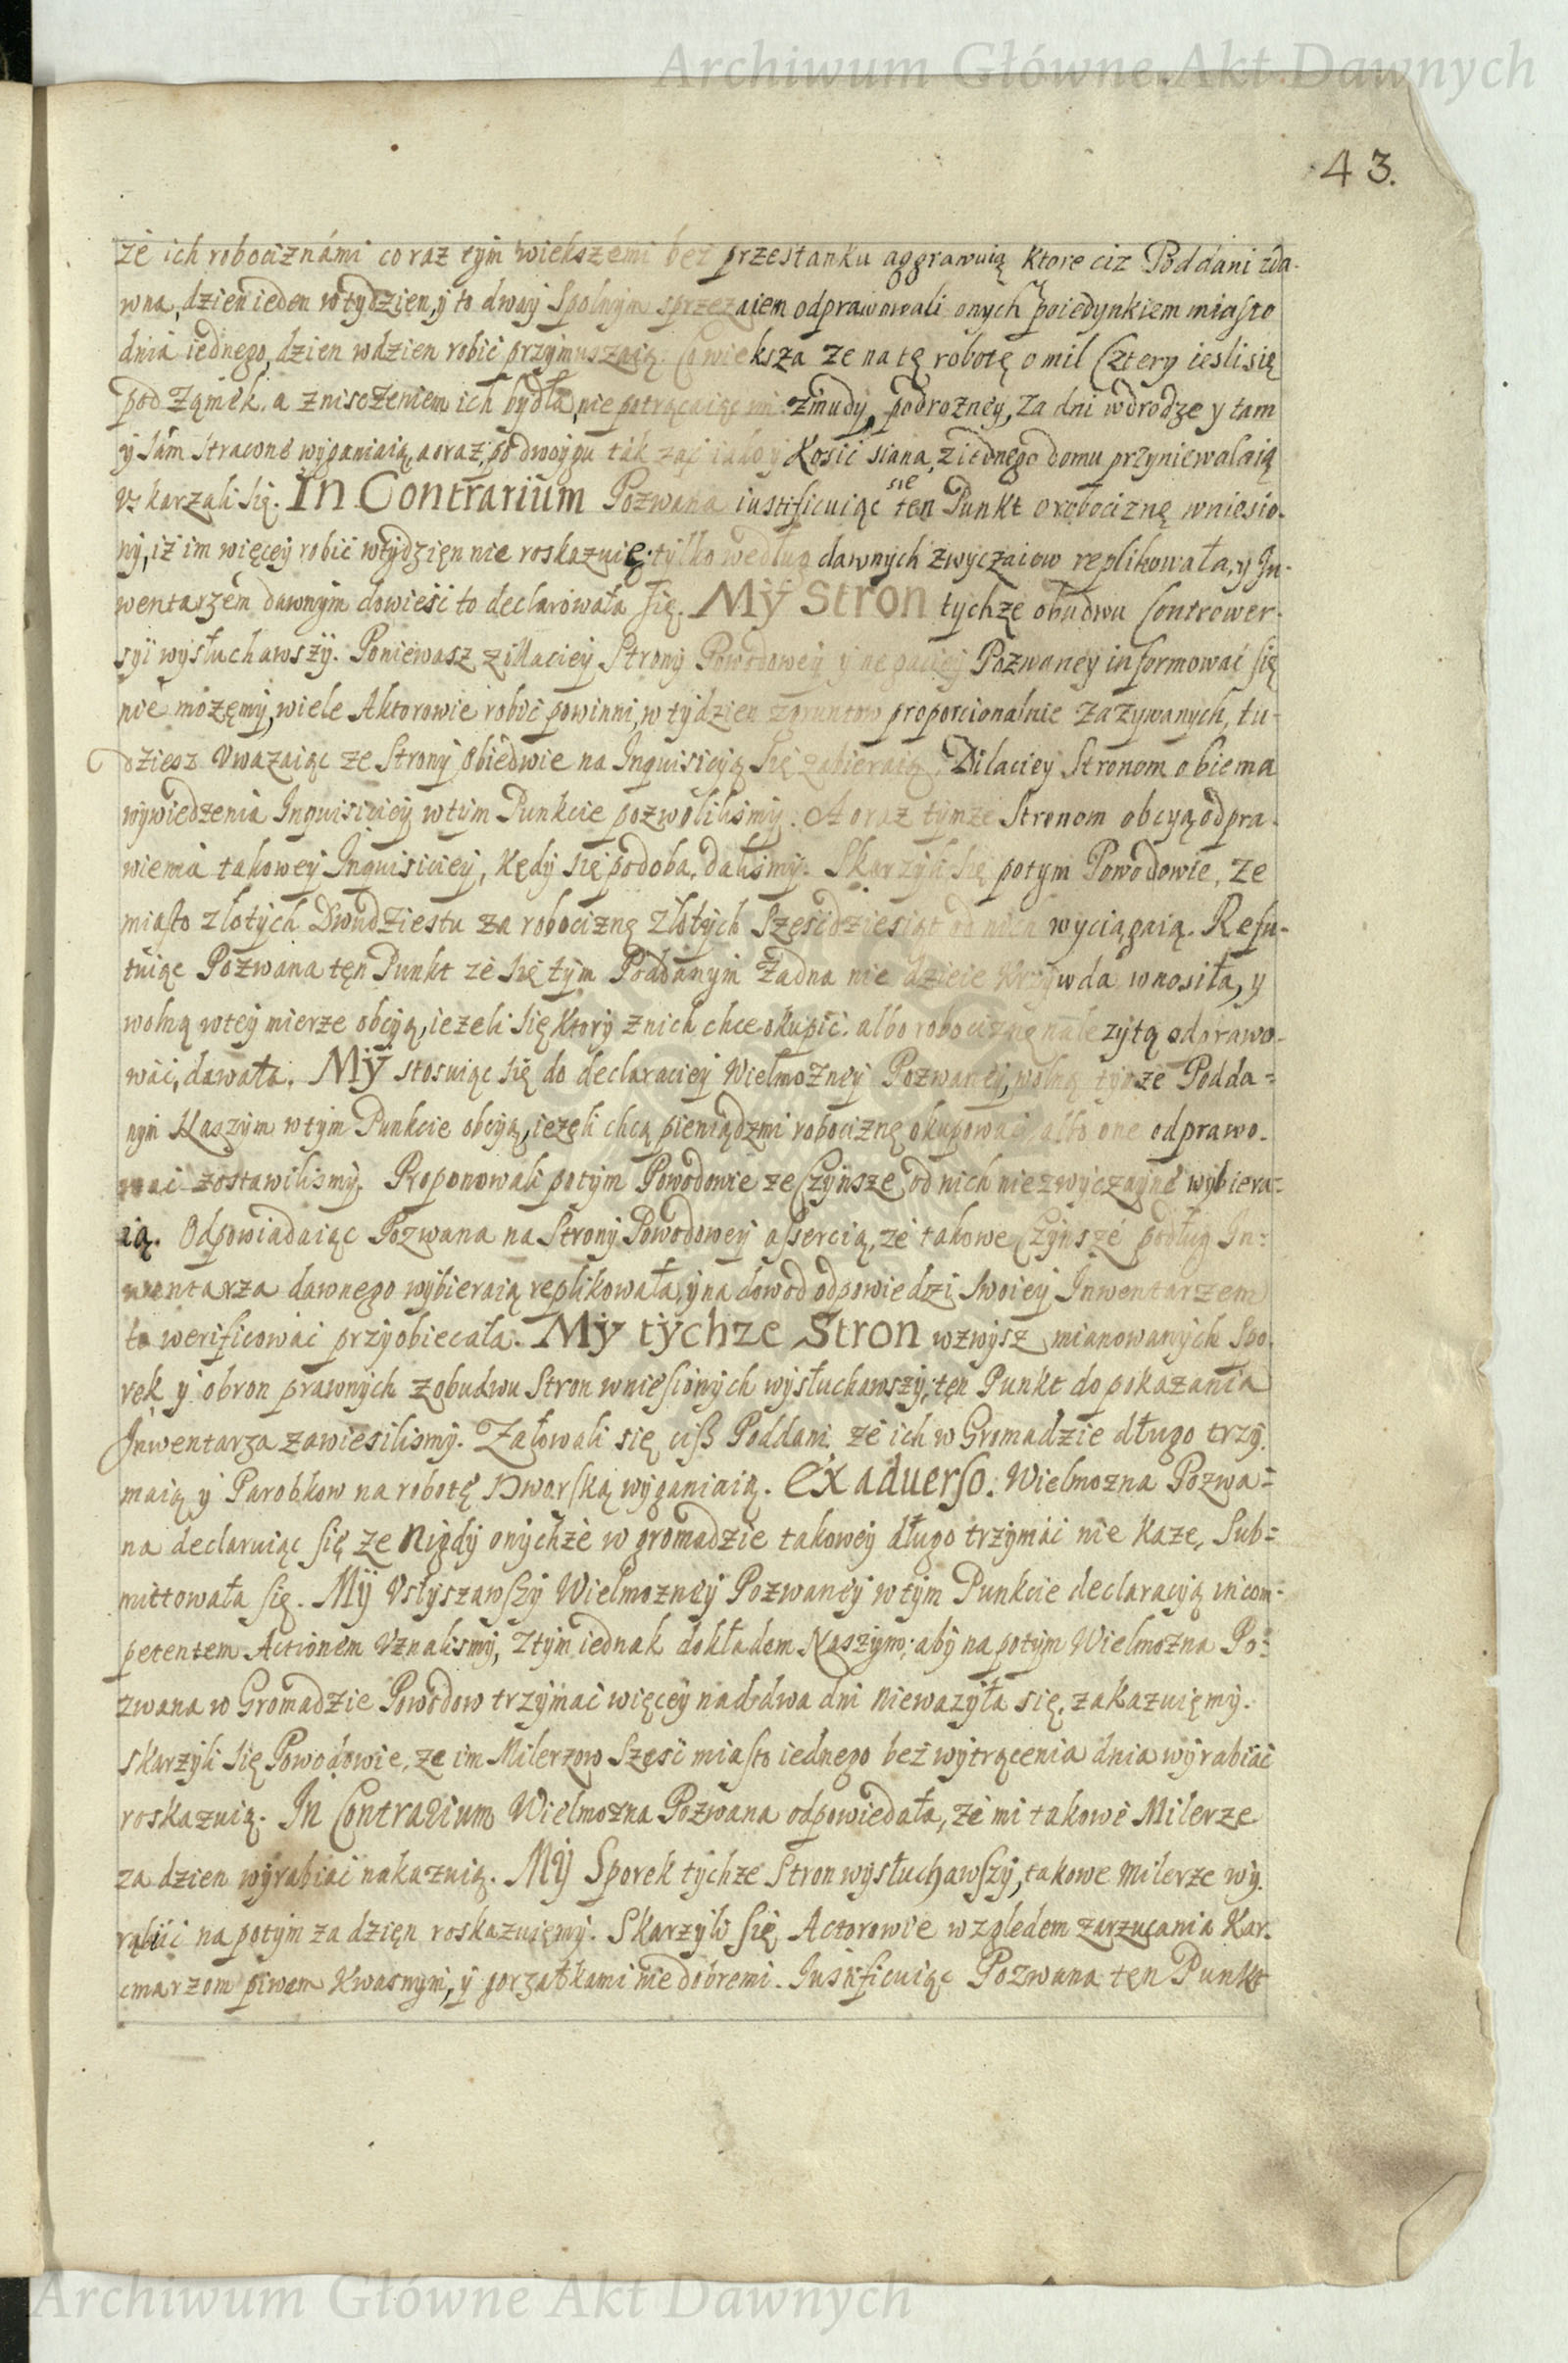 Archiwum Główne Akt Dawnych
43.
że ich robociznámi co raz tym większemi bez przestanku aggrawuią ktore ciz Poddáni zda-
wna, dzień ieden w tydzien, y to dway spolnym sprzęzaiem odprawowali onych poiedynkiem miasto
dnia iednego, dzien wdzien robić przymuszaią. Co większa ze na tę robotę o mil Cztery iesli się
pod Zamek, a zniszczeniem ich bydła, nie potrącaiąc im zmudy podrozney, za dni wdrodze y tam
y sám stracone wyganiaią, a oraz, po dwoygu tak żąć iako y Kosić siana, z iednego domu przyniewalaią
vskarzali się. In Contrarium Pozwana iustificuiąc się ten Punkt o robociznę wniesio-
ny, iż im więcey robić wtydzięn nie roskazuię tylko według dawnych zwyczaiow replikowała, y In-
wentarzem dawnym dowieść to declarowała się. My Stron tychze obudwu Contrower-
syi wysłuchawszy. Poniewasz z illaciey Strony Powodowey y negaciey Pozwaney informować się
nie mozęmy, wiele Aktorowie robić powinni, w tydzien zgruntow proporcionalnie zazywanych, tu-
dziesz Vwazaiąc ze Strony Obiedwie na Inquisicyą się zabieraią. Dilaciey Stronom obiema
wywiedzenia Inquisiciey w tym Punkcie pozwoliliśmy. A oraz tymze Stronom obcyą odpra-
wienia takowey Inquisiciey, kędy się podoba, daliśmy. Skarzyli się potym Powodowie, ze
miasto złotych Dwudziestu za robociznę złotych Szęśćdziesiąt od nich wyciągaią. Refu-
tuiąc Pozwana tęn Punkt ze się tym Poddanym żadna nie dzieie krzywda wnosiła, y
wolną wtey mierze obcyą, iezeli się ktory z nich chce okupić albo robociznę nalezytą odprawo-
wać, dawała. My stosuiąc się do declaraciey Wielmozney Pozwaney, wolną tymze Podda-
nym Naszym w tym Punkcie obcyą, iezęli chcą pieniądzmi robociznę okupować albo one odprawo-
wać zostawilismy. Proponowali potym Powodowie ze Czynsze od nich niezwyczayne wybiera-
ią. Odpowiadaiąc Pozwana na Strony Powodowey assercią, ze takowe Czynsze podług In-
wentarza dawnego wybieraią replikowała, y na dowod odpowiedzi swoiey Inwentarzem
to werificować przyobiecała. My tychze Stron wzwysz mianowanych Spo-
rek y obron prawnych z obudwu Stron wniesionych wysłuchawszy, tęn Punkt do pokazania
Inwentarza zawiesilismy. Załowali się ciß Poddani ze ich w Gromadzie długo trzy-
maią y Parobkow na robotę Dworską wyganiaią. Ex aduerso. Wielmozna Pozwa-
na declaruiąc się ze nigdy onychże w gromadzie takowey długo trzymać nie każe, Sub-
mittowała się. My Vsłyszawszy Wielmozney Pozwaney w tym Punkcie declaracyą incom-
petentem Actionem Vznalismy, z tym iednak dokładem Naszym: aby na potym Wielmozna Po-
zwana w Gromadzie Powodow trzymać więcey nad dwa dni niewazyła się, zakazuięmy.
Skarzyli się Powodowie, ze im Milerzow Szęść miasto iednego bez wytrącenia dnia wyrabiać
roskazuią. In Contrarium Wielmozna Pozwana odpowiedała, że mi takowe Milerze
za dzien wyrabiać nakazuią. My Sporek tychze Stron wysłuchawszy, takowe Milerze wy-
rabiać na potym za dzięn roskazuięmy. Skarzyli się Actorowie względem zarzucania Kar-
cmarzom piwem kwasnym, y gorzałkami nie dobremi. Iustificuiąc Pozwana tęn Punkt
Archiwum Główne Akt Dawnych